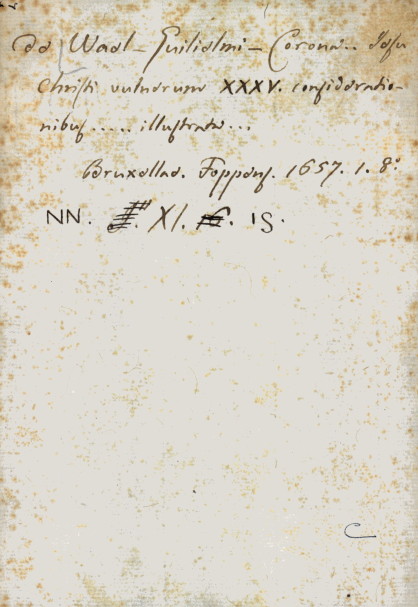 de Wael – Guilielmi – Corona.. Jesu
Christi vulnerum XXXV. consideratio-
nibus ..... illustrata...
Bruxellae. Foppens. 1657. 1. 8°
NN. XI. 15.
C